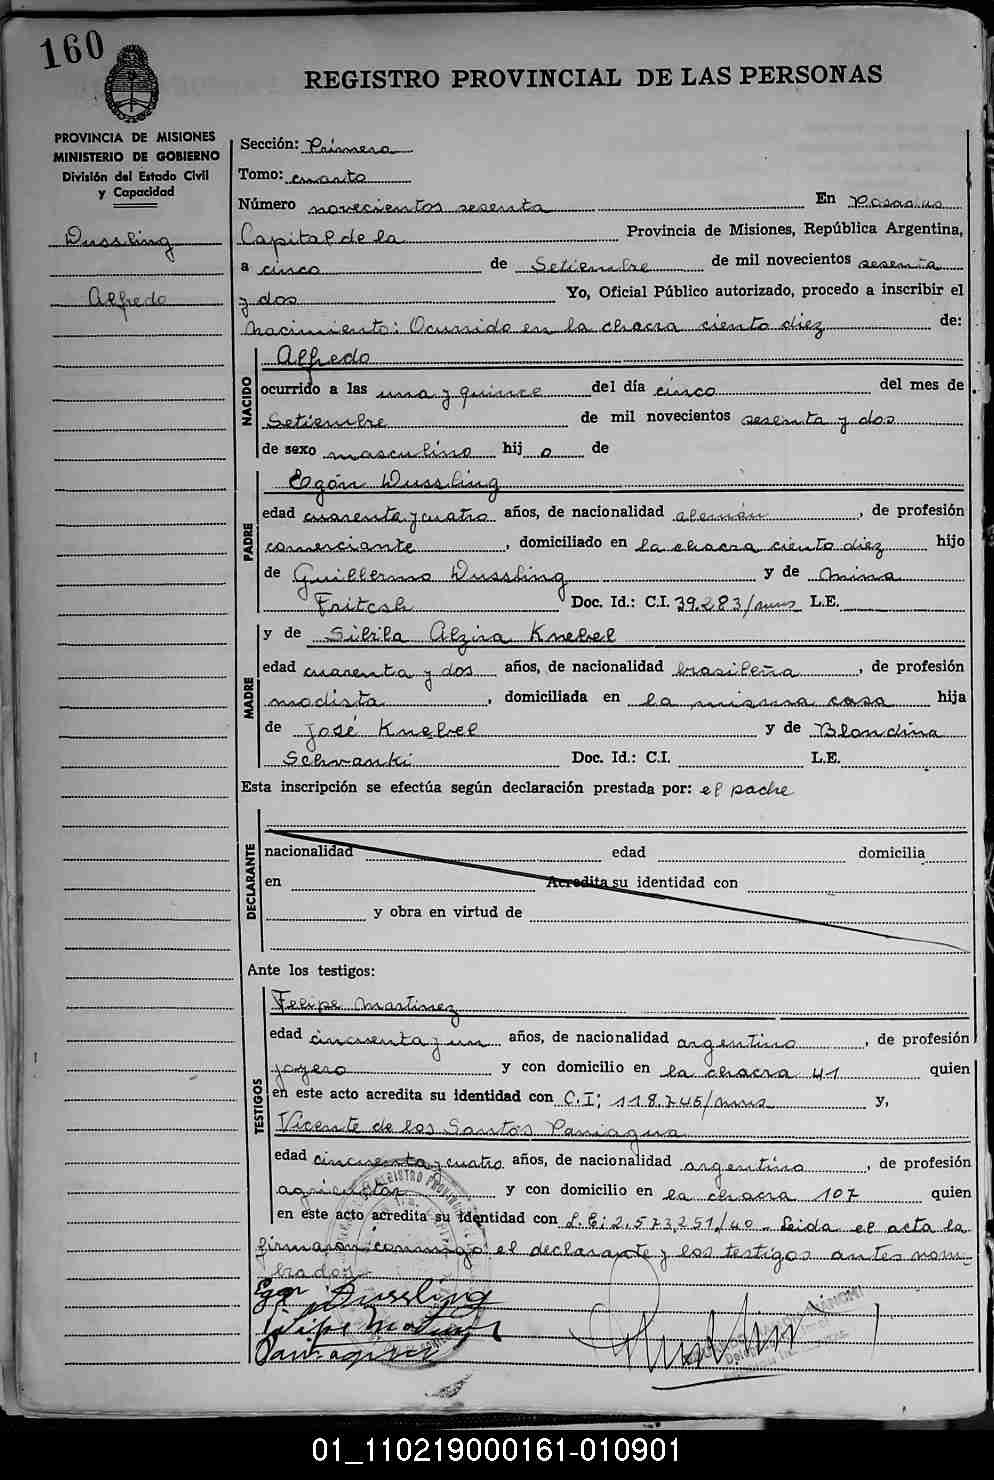 160
REGISTRO PROVINCIAL DE LAS PERSONAS
PROVINCIA DE MISIONES
MINISTERIO DE GOBIERNO
División del Estado Civil
y Capacidad
Dussling
Alfredo
Sección: Primera
Tomo: cuarto
Número novecientos sesenta En Posadas
Capital de la Provincia de Misiones, República Argentina,
a cinco de Setiembre de mil novecientos sesenta
y dos Yo, Oficial Público autorizado, procedo a inscribir el
Nacimiento: Ocurrido en la chacra ciento diez de:
NACIDO
Alfredo
ocurrido a las una y quince del día cinco del mes de
Setiembre de mil novecientos sesenta y dos
de sexo masculino hij o de
PADRE
Egón Dussling
edad cuarenta y cuatro años, de nacionalidad alemán, de profesión
comerciante, domiciliado en la chacra ciento diez hijo
de Guillermo Dussling y de Mina
Fritcsh Doc. Id.: C.I. 39.283/mns L.E.
MADRE
y de Sibila Alzira Knebel
edad cuarenta y dos años, de nacionalidad brasileña, de profesión
modista, domiciliada en la misma casa hija
de José Knebel y de Blondina
Schvanki Doc. Id.: C.I. L.E.
Esta inscripción se efectúa según declaración prestada por: el padre
DECLARANTE
nacionalidad edad domicilia
en Acredita su identidad con
y obra en virtud de
Ante los testigos:
TESTIGOS
Felipe Martinez
edad cincuenta y un años, de nacionalidad argentino, de profesión
joyero y con domicilio en la chacra 41 quien
en este acto acredita su identidad con C.I: 118.746/mns y,
Vicente de los Santos Paniagua
edad cincuenta y cuatro años, de nacionalidad argentino, de profesión
agricultor y con domicilio en la chacra 107 quien
en este acto acredita su identidad con L.E: 2.573.251/40. Leida el acta la
firmaron conmigo el declarante y los testigos antes nom-
brados
Egon Dussling
Felipe Martinez
Paniagua
01_110219000161-010901